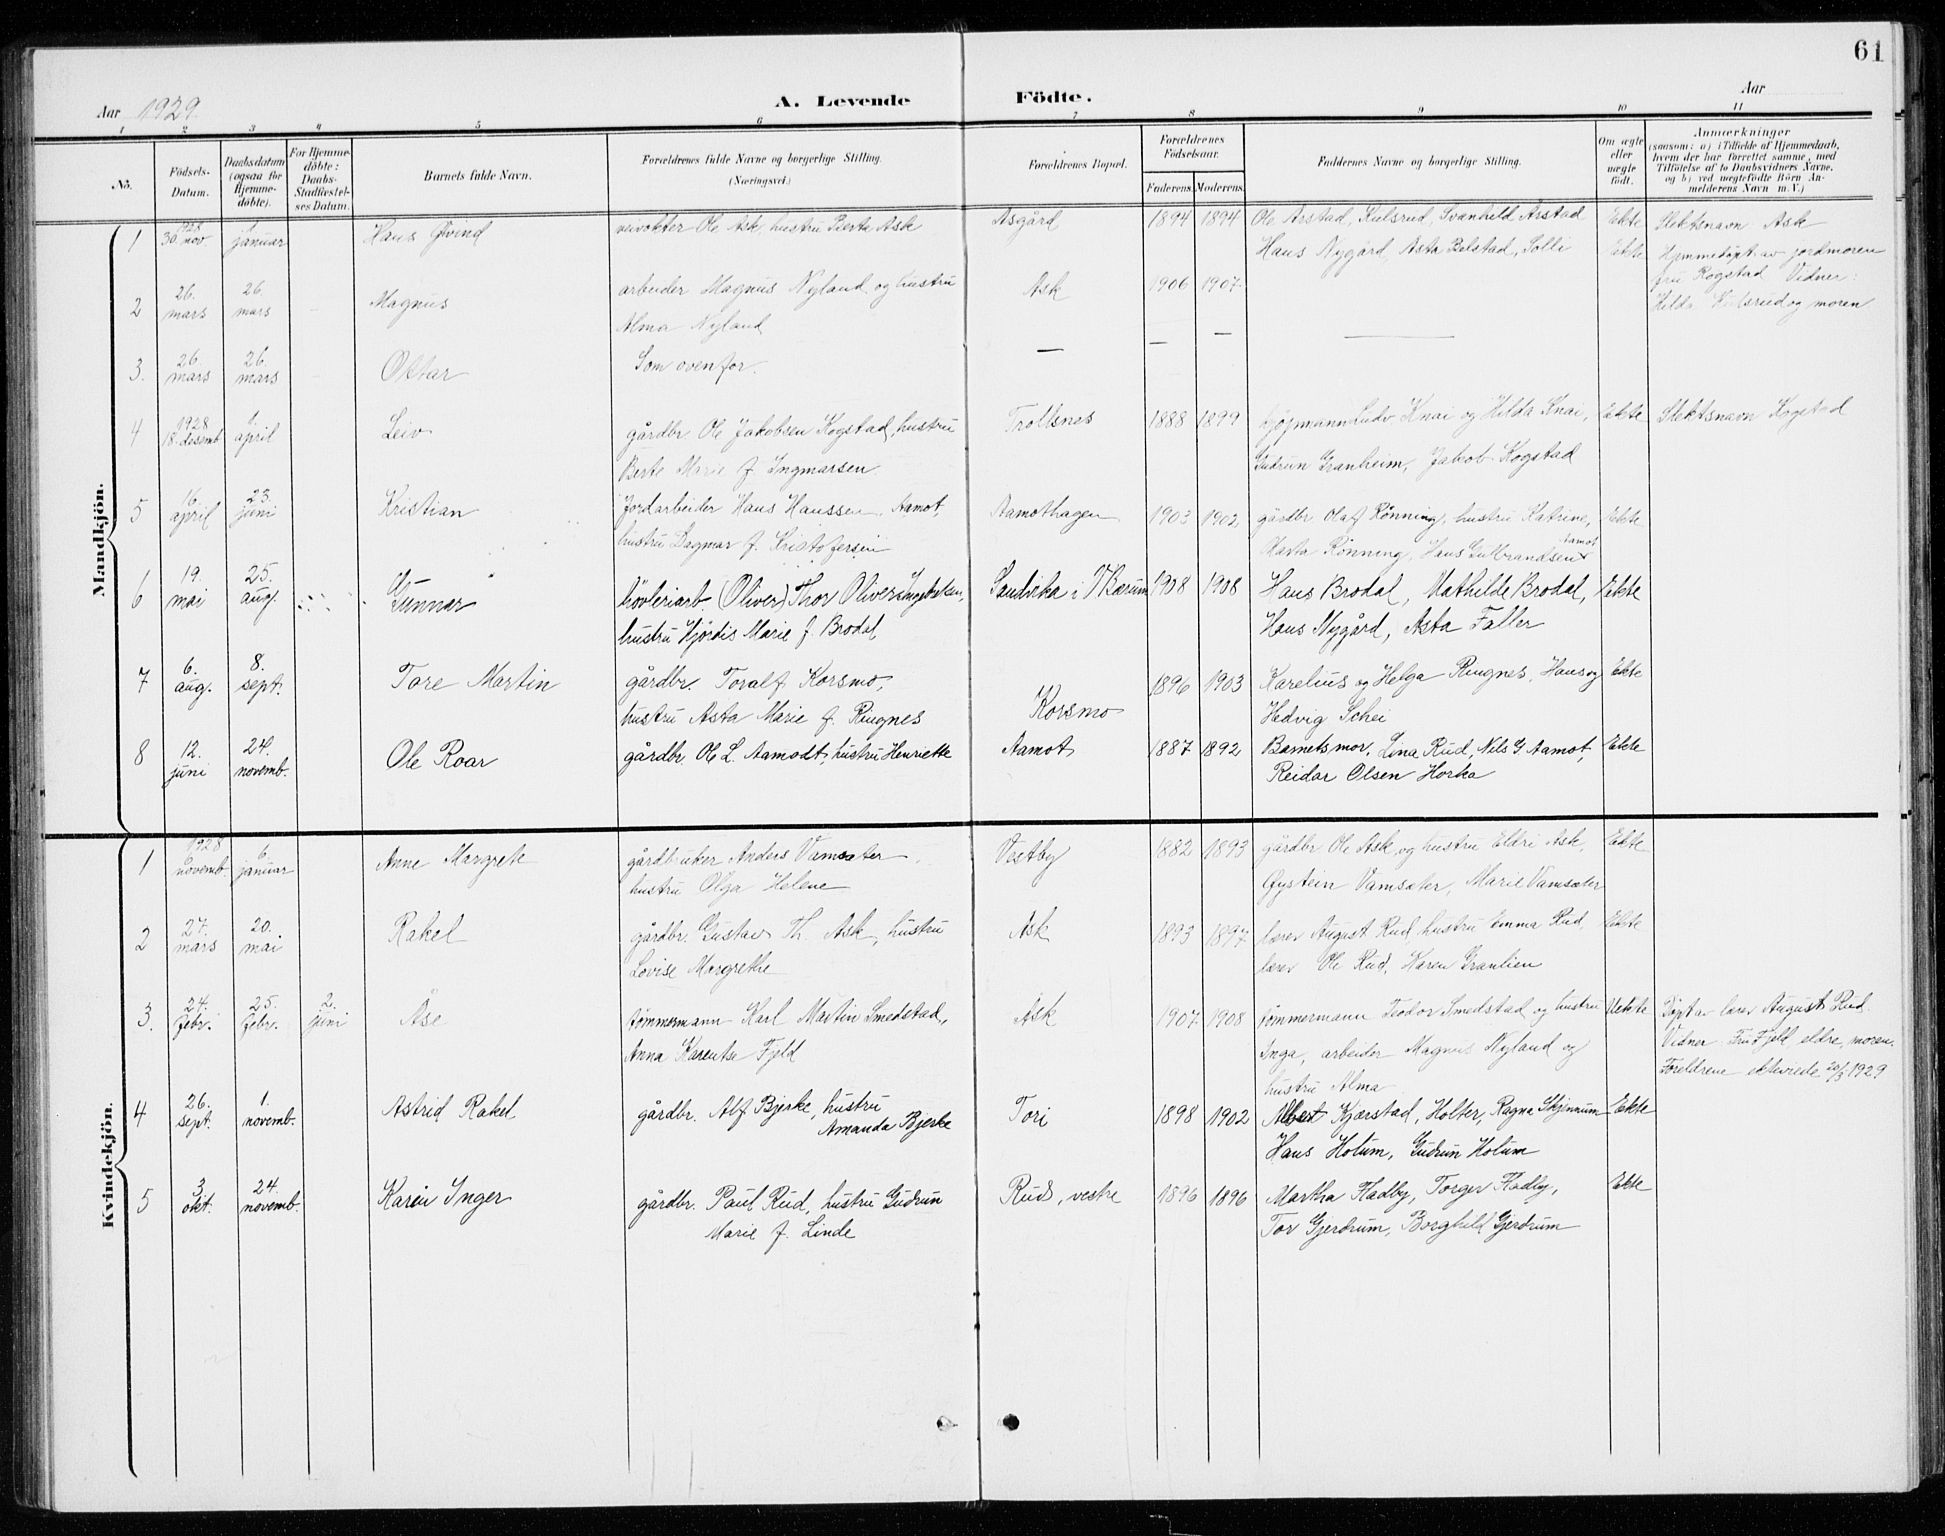 61
Aar 1929.
A. Levende Födte.
Aar
1 2 3 4 5 6 7 8 9 10 11
No.
Födsels-Datum.
Daabsdatum (ogsaa for Hjemmedöbte).
For Hjemmedöbte: Daabs-Stadfestelses Datum.
Barnets fulde Navn.
Forældrenes fulde Navne og borgerlige Stilling.
(Næringsvei.)
Forældrenes Bopæl.
Forældrenes Födselsaar.
Faderens. Moderens.
Faddernes Navne og borgerlige Stilling.
Om ægte eller uægte födt.
Anmærkninger
(saasom: a) i Tilfælde af Hjemmedaab, hvem der har forrettet samme, med Tilföielse af to Daabsvidners Navne, og b) ved uægtefödte Börn Anmelderens Navn m. V.)
Mandkjön.
1 1928 30. nov januar Hans Øivind veivokter Ole Ask, hustru Berte Ask Asgård 1894 1894 Ole Arstad, Kulsrud, Svanhild Arstad Ekte Slektsnavn Ask
Hans Nygård, Asta Bolstad, Solli
2 26. mars 26. mars Magnus arbeider Magnus Nyland og hustru Ask 1906 1907 Ekte Hjemmedöpt av jordmoren
Alma Nyland fru Rogstad Vidner:
Hilda Kulsrud og moren
3. 26. mars 26. mars Ottar Som ovenfor. — — — —
4 1928 18. desemb 1 april Leiv gårdbr Ole Jakobsen Kogstad, hustru Trollsnes 1888 1899 kjöpmann Ludv. Knai og Hilda Knai, Ekte Slektsnavn Kogstad
Berte Marie f. Ingmarsen Gudrun Granheim, Jakob Kogstad
5 16. april 23. juni Kristian Jordarbeider Hans Hanssen Aamot, Aamothagen 1903 1902 gårdbr Olaf Rönning, hustru Katrine, Ekte
hustru Dagmar f. Kristofersen Marta Rönning, Hans Gulbrandsen Aamot
6 19. mai 25. aug. Gunnar hövleriarb. (Oliver) Thor Oliver Sandvika i V Bærum 1908 1908 Hans Brodal, Mathilde Brodal, Ekte
hustru Hjördis Marie f. Brodal Hans Nygård, Asta Faller
7 6. aug. 8. sept. Tore Martin gårdbr. Toralf Korsmo, Korsmo 1896 1903 Karelius og Helga Ringnes, Hans og Ekte
hustru Asta Marie f. Ringnes Hedvig Schei
8 12. juni 24. novemb. Ole Roar gårdbr. Ole L. Aamodt, hustru Henriette Aamot 1887 1892 Barnets mor, Lina Rud, Nils G. Aamot, Ekte
Reidar Olsen Horka
Kvindekjön.
1 1928 6 novemb. 6. januar Anne Margrete gårdbruker Anders Vamsæter Vestby 1882 1893 gårdbr Ole Ask og hustru Eldri Ask, Ekte
hustru Olga Helene Øystein Vamsæter, Marie Vamsæter
2 27. mars 20. mai Rakel gårdbr. Gustav Th. Ask, hustru Ask 1893 1897 lærer August Rud, hustru Emma Rud, Ekte
Lovise Margrethe lærer Ole Rud, Karen Granlien
3. 24. febr. 25. febr. 2. juni Åse tömmermann Karl Martin Smedstad, Ask 1907 1908 tömmermann Teodor Smedstad og hustru Uekte Döpt av lærer August Rud.
Anna Karentse Fjeld Inga, arbeider Magnus Nyland og Vidner Fru Fjeld eldre, moren.
hustru Alma Foreldrene ekteviede 20/3 1929
4 26. sept. 1. novemb. Astrid Rakel gårdbr. Alf Bjerke, hustru Tori 1898 1902 Albert Kjærstad, Holter, Ragna Skjennum Ekte
Amanda Bjerke Hans Holum, Gudrun Holum
5 3 okt. 24. novemb. Karin Inger gårdbr. Paul Rud, hustru Gudrun Rud, vestre 1896 1896 Martha Fladby, Torger Fladby, Ekte
Marie f. Linde Tor Gjerdrum, Borghild Gjerdrum